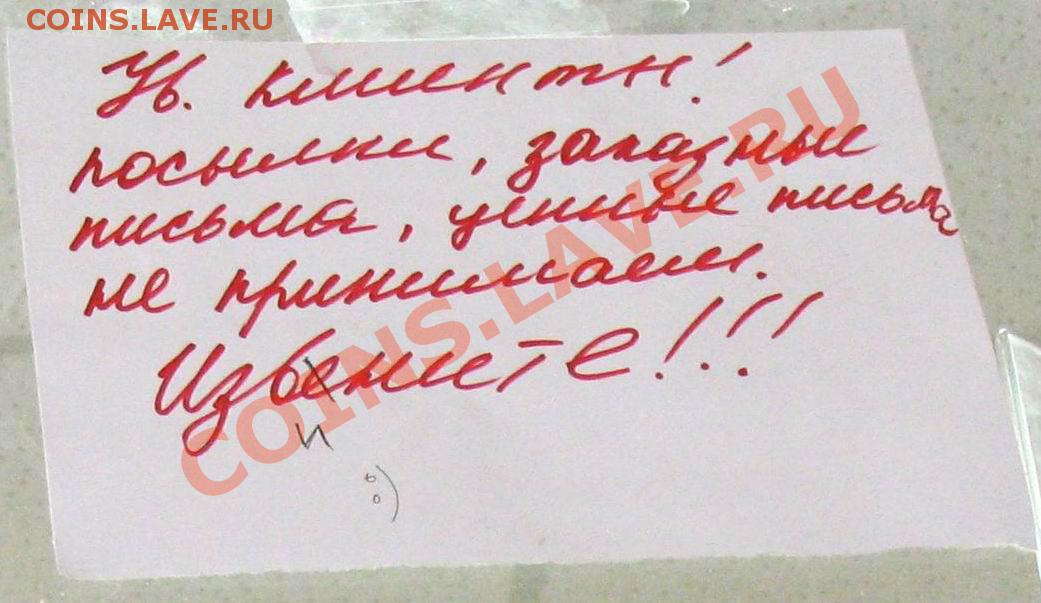 COINS.LAVE.RU
Ув. клиенты!
посылки, заказные
письма, ценные письма
не принимаем.
Извените!!!
и
:)
COINS.LAVE.RU